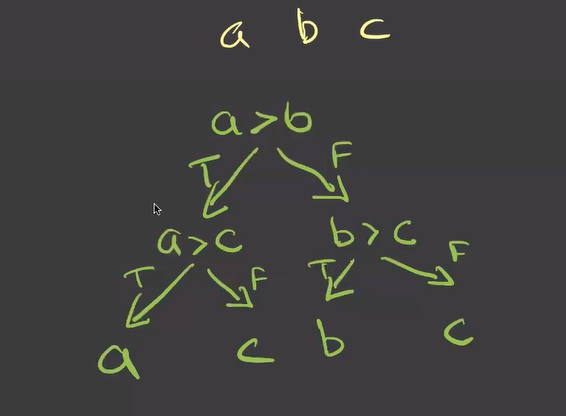 a b c
a > b
T F
a > c b > c
T F T F
a c b c